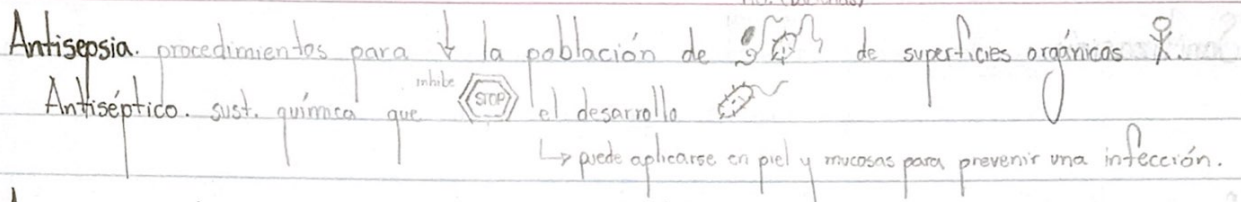 Antisepsia. procedimientos para ↓ la población de de superficies orgánicas.
inhibe
Antiséptico. sust. química que STOP el desarrollo
↳ puede aplicarse en piel y mucosas para prevenir una infección.